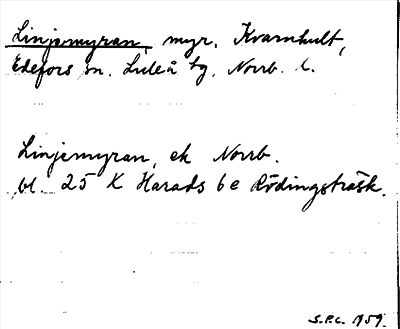 Linjemyran, myr, Kvarnhult,
Edefors sn. Luleå tg, Norrb. l.
Linjemyran, ek Norrb.
bl. 25 K Harads 6 e Rödingsträsk.
S.P.C. 1959.